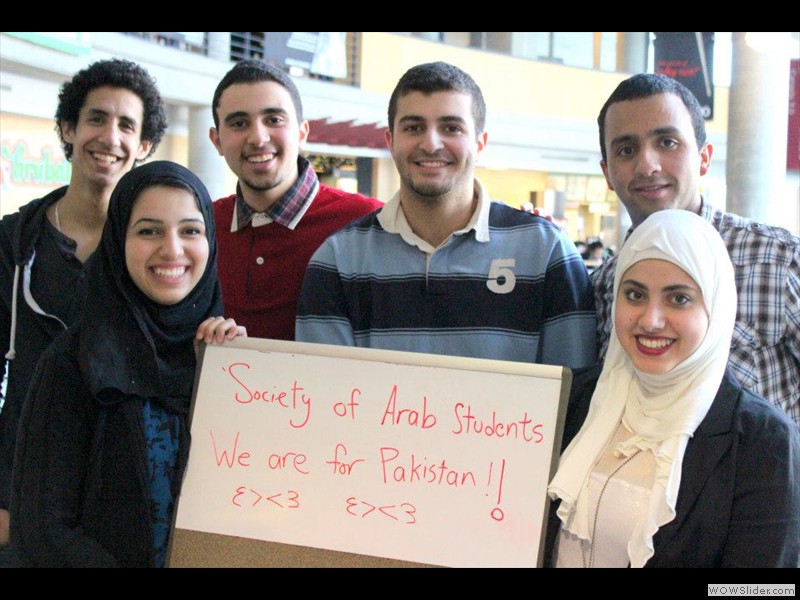 Society of Arab Students
We are for Pakistan!!
ε><3 ε><3
5
WOWSlider.com